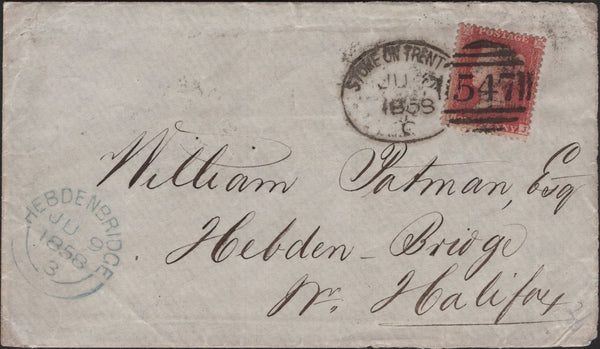 STOKE ON TRENT
JU
1858
C
547
POSTAGE
William Patman, Esq
Hebden-Bridge
Nr. Halifax
HEBDENBRIDGE
JU 9
1858
3